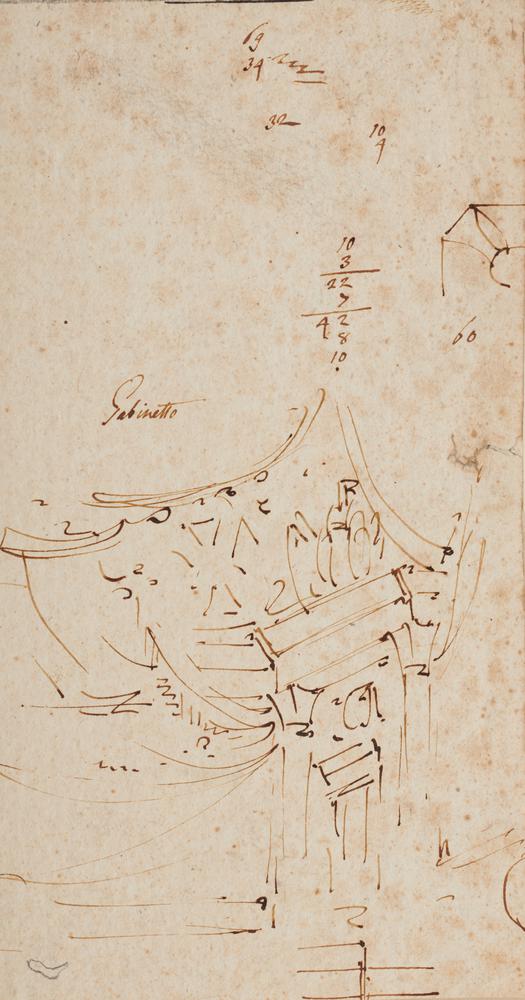 69
34
32
10
4
10
3
22
7
42
8
10
60
Gabinetto